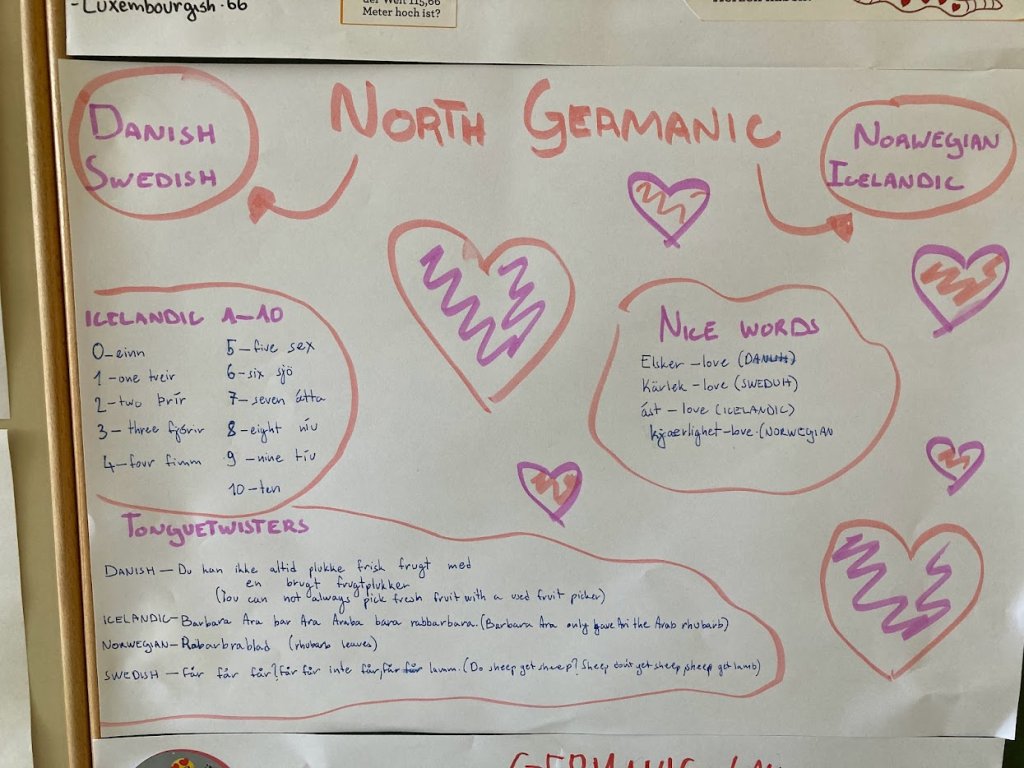 -Luxembourgish.66
der Welt 115,66
Meter hoch ist?
NORTH GERMANIC
DANISH
SWEDISH
NORWEGIAN
ICELANDIC
ICELANDIC 1-10
0-einn
1-one tveir
2-two þrír
3-three fjórir
4-four fimm
5-five sex
6-six sjö
7-seven átta
8-eight níu
9-nine tíu
10-ten
NICE WORDS
Elsker-love (DANISH)
Kärlek-love (SWEDISH)
ást-love (ICELANDIC)
kjaerlighet-love.(NORWEGIAN
TONGUETWISTERS
DANISH-Du kan ikke altid plukke frisk frugt med
en brugt frugtplukker
(You can not always pick fresh fruit with a used fruit picker)
ICELANDIC-Barbara Ara bar Ara Araba bara rabbarbara.(Barbara Ara only gave Ari the Arab rhubarb)
NORWEGIAN-Rabarbrablad (rhubarb leaves)
SWEDISH-får får får? får får inte får, får får lamm.(Do sheep get sheep? Sheep don't get sheep, sheep get lamb)